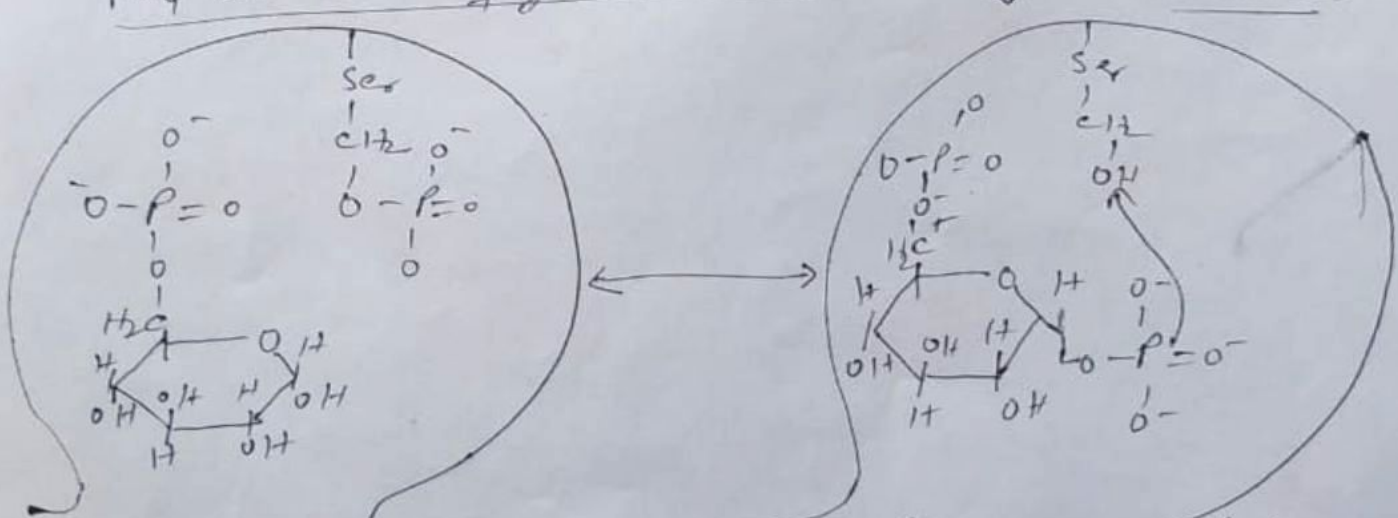 Ser
CH2 O-
O - P = O
O
O-
-O - P = O
O
H2C O H
H OH H OH
OH H OH
Ser
CH2
OH
O
O - P = O
O-
H2C O H O-
H OH H O - P = O-
OH H OH O-